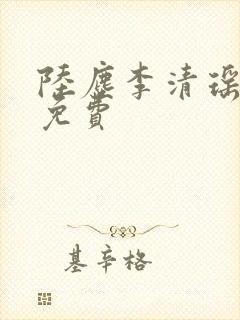 陸塵李清瑶
免費
基辛格